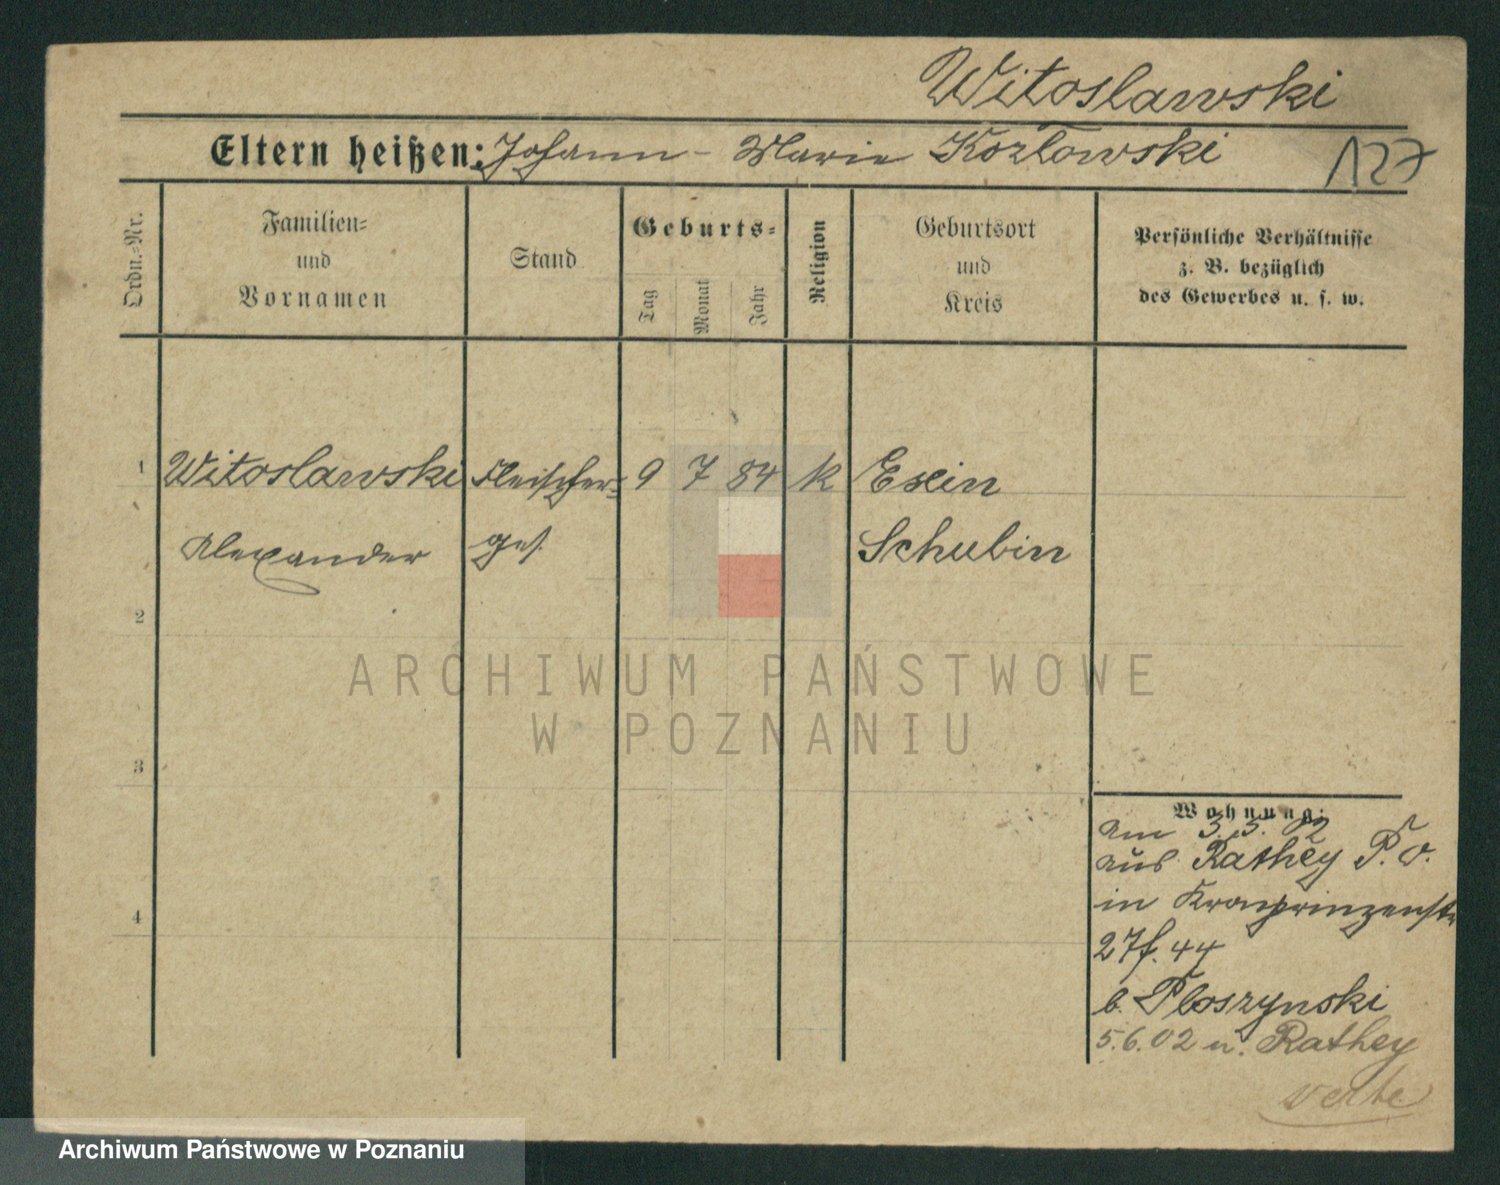 Witoslawski
Eltern heißen: Johann - Marie Kozlowski
127
Ordn.-Nr.
Familien-
und
Vornamen
Stand
Geburts-
Tag
Monat
Jahr
Religion
Geburtsort
und
Kreis
Persönliche Verhältnisse
z. B. bezüglich
des Gewerbes u. s. w.
1 Witoslawski Fleischer- 9 7 84 k Exin
Alexander ges. Schubin
2
3
4
ARCHIWUM PAŃSTWOWE
W POZNANIU
Wohnung:
am 3.5.02
aus Rathey P. O.
in Kronprinzenstr
27f. 44
b. Ploszynski
5.6.02 n. Rathey
verte
Archiwum Państwowe w Poznaniu